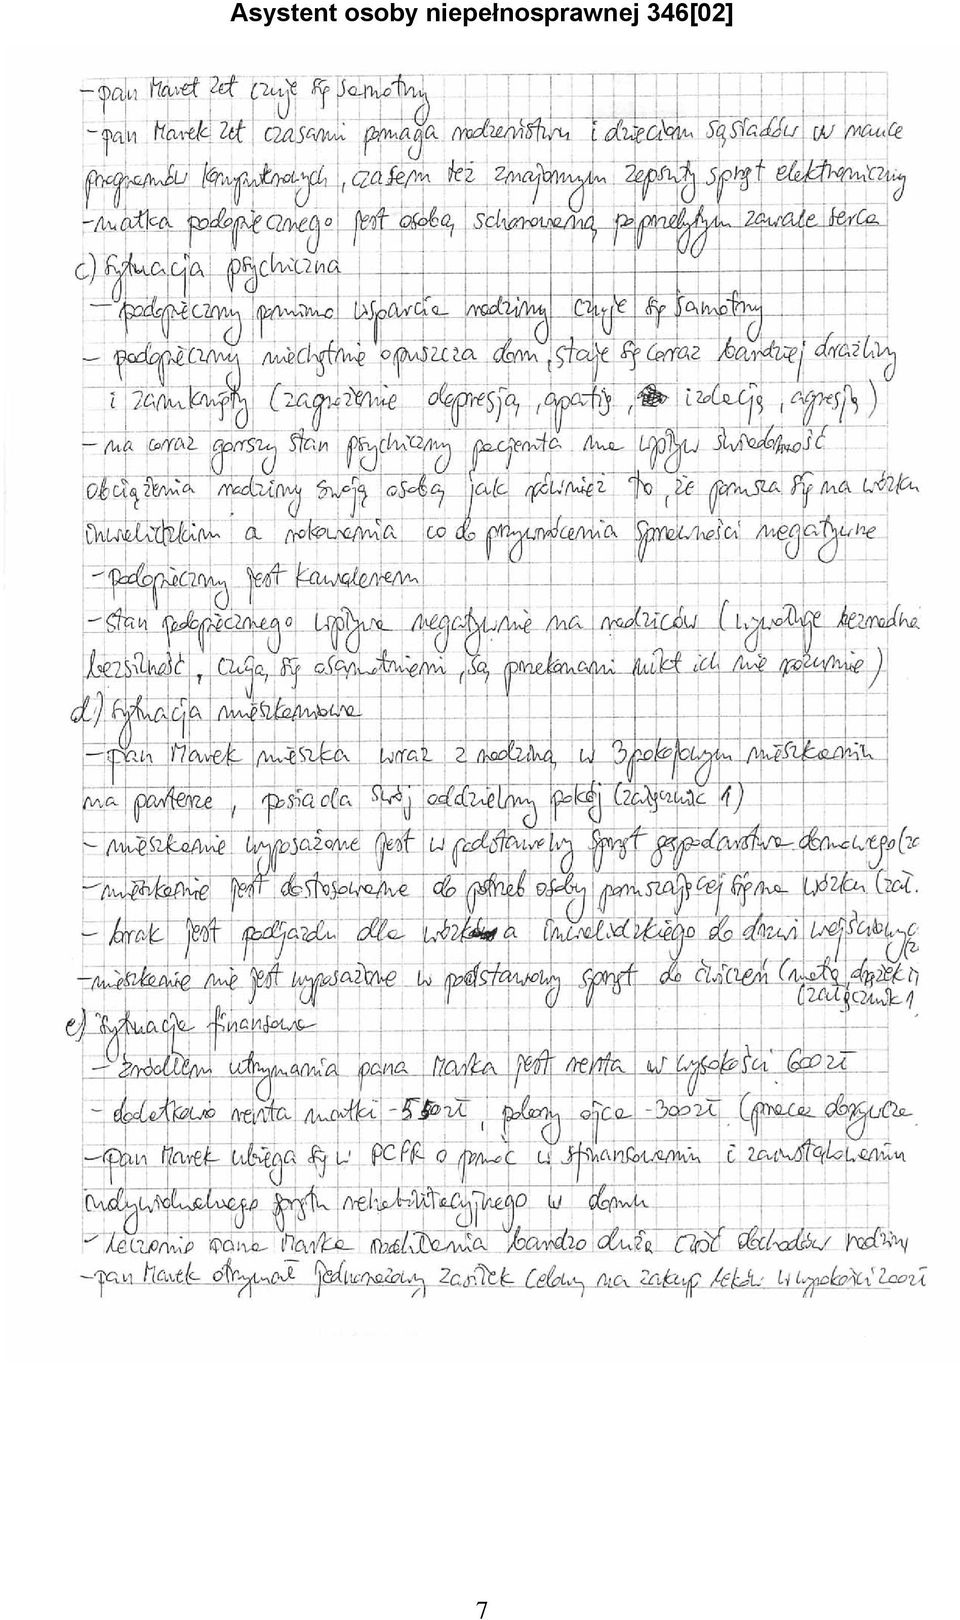 Asystent osoby niepełnosprawnej 346[02]
- pan Marek Zet czuje się samotny
- pan Marek Zet czasami pomaga rodzeństwu i dzieciom sąsiadów w nauce
programów komputerowych, czasem też znajomym zepsuty sprzęt elektroniczny
- matka podopiecznego jest osobą schorowaną po przebytym zawale serca
c) sytuacja psychiczna
- podopieczny pomimo wsparcia rodziny czuje się samotny
- podopieczny niechętnie opuszcza dom, staje się coraz bardziej drażliwy
i zamknięty (zagrożenie depresją, apatią, izolacją, agresją)
- na coraz gorszy stan psychiczny pacjenta ma wpływ świadomość
obciążenia rodziny swoją osobą jak również to, że porusza się na wózku
inwalidzkim a rokowania co do przywrócenia sprawności negatywne
- Podopieczny jest kawalerem
- stan podopiecznego wpływa negatywnie na rodziców (wywołuje bezradna
bezsilność, czują się osamotnieni, są przekonani nikt ich nie rozumie)
d) sytuacja mieszkaniowa
- pan Marek mieszka wraz z rodziną w 3 pokojowym mieszkaniu
na parterze, posiada swój oddzielny pokój (załącznik 1)
- mieszkanie wyposażone jest w podstawowy sprzęt gospodarstwa domowego (za
- mieszkanie jest dostosowane do potrzeb osoby poruszającej się na wózku (zał.
- brak jest podjazdu dla wózka inwalidzkiego do drzwi wejściowyc (z
- mieszkanie nie jest wyposażone w podstawowy sprzęt do ćwiczeń (mata, drążek
(załącznik 1
e) sytuacja finansowa
- źródłem utrzymania pana Marka jest renta w wysokości 600 zł
- dodatkowo renta matki - 550 zł, pobory ojca - 300 zł (praca dorywcza
- pan Marek ubiega się w PCPR o pomoc w sfinansowaniu i zainstalowaniu
indywidualnego sprzętu rehabilitacyjnego w domu
- leczenie pana Marka pochłania bardzo dużą część dochodów rodziny
- pan Marek otrzymał jednorazowy zasiłek celowy na zakup leków w wysokości 200 zł
7